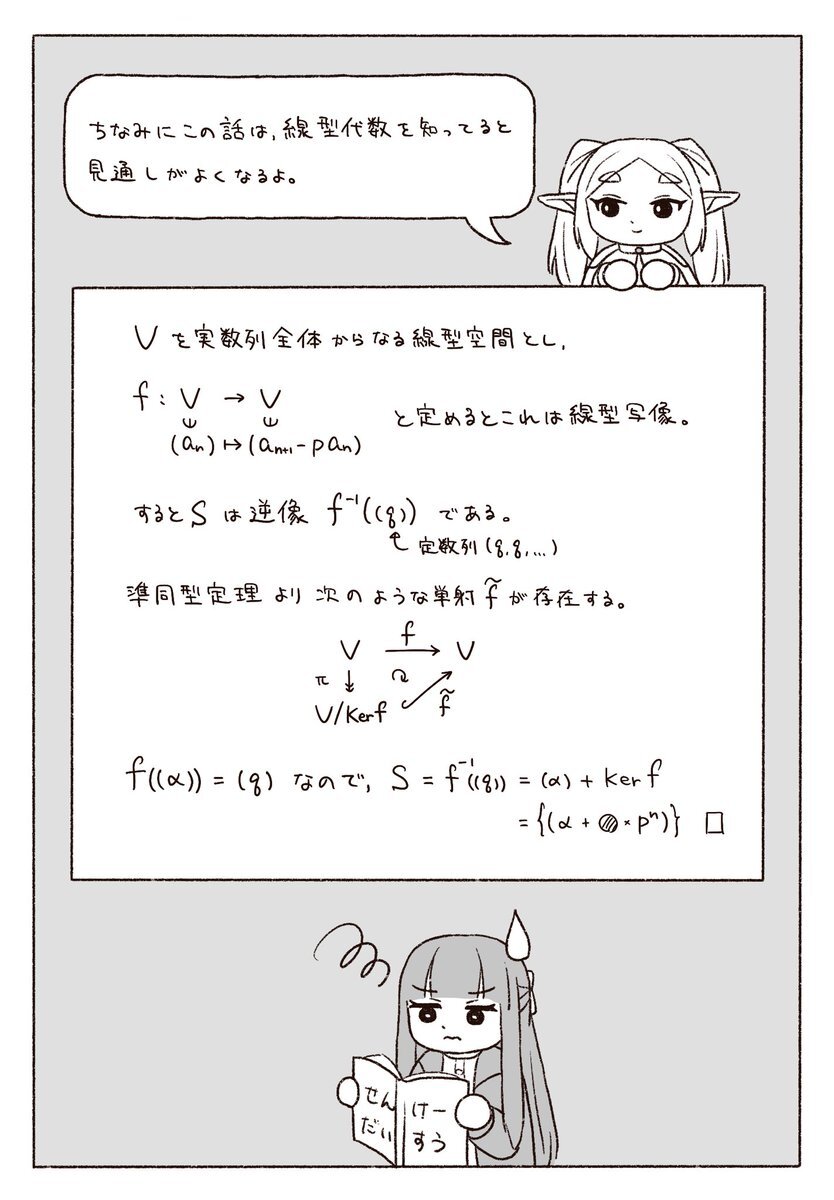 ちなみにこの話は,線型代数を知ってると
見通しがよくなるよ。
Vを実数列全体からなる線型空間とし,
f : V → V
と定めるとこれは線型写像。
(aₙ) ↦ (aₙ₊₁ - p aₙ)
するとSは逆像 f⁻¹((q)) である。
定数列 (q,q,...)
準同型定理より次のような単射 f̃ が存在する。
f
V → V
π
V/Kerf
f̃
f((α)) = (q) なので, S = f⁻¹((q)) = (α) + Ker f
= {(α + ◍ × pⁿ)} □
せん けー
だい すう